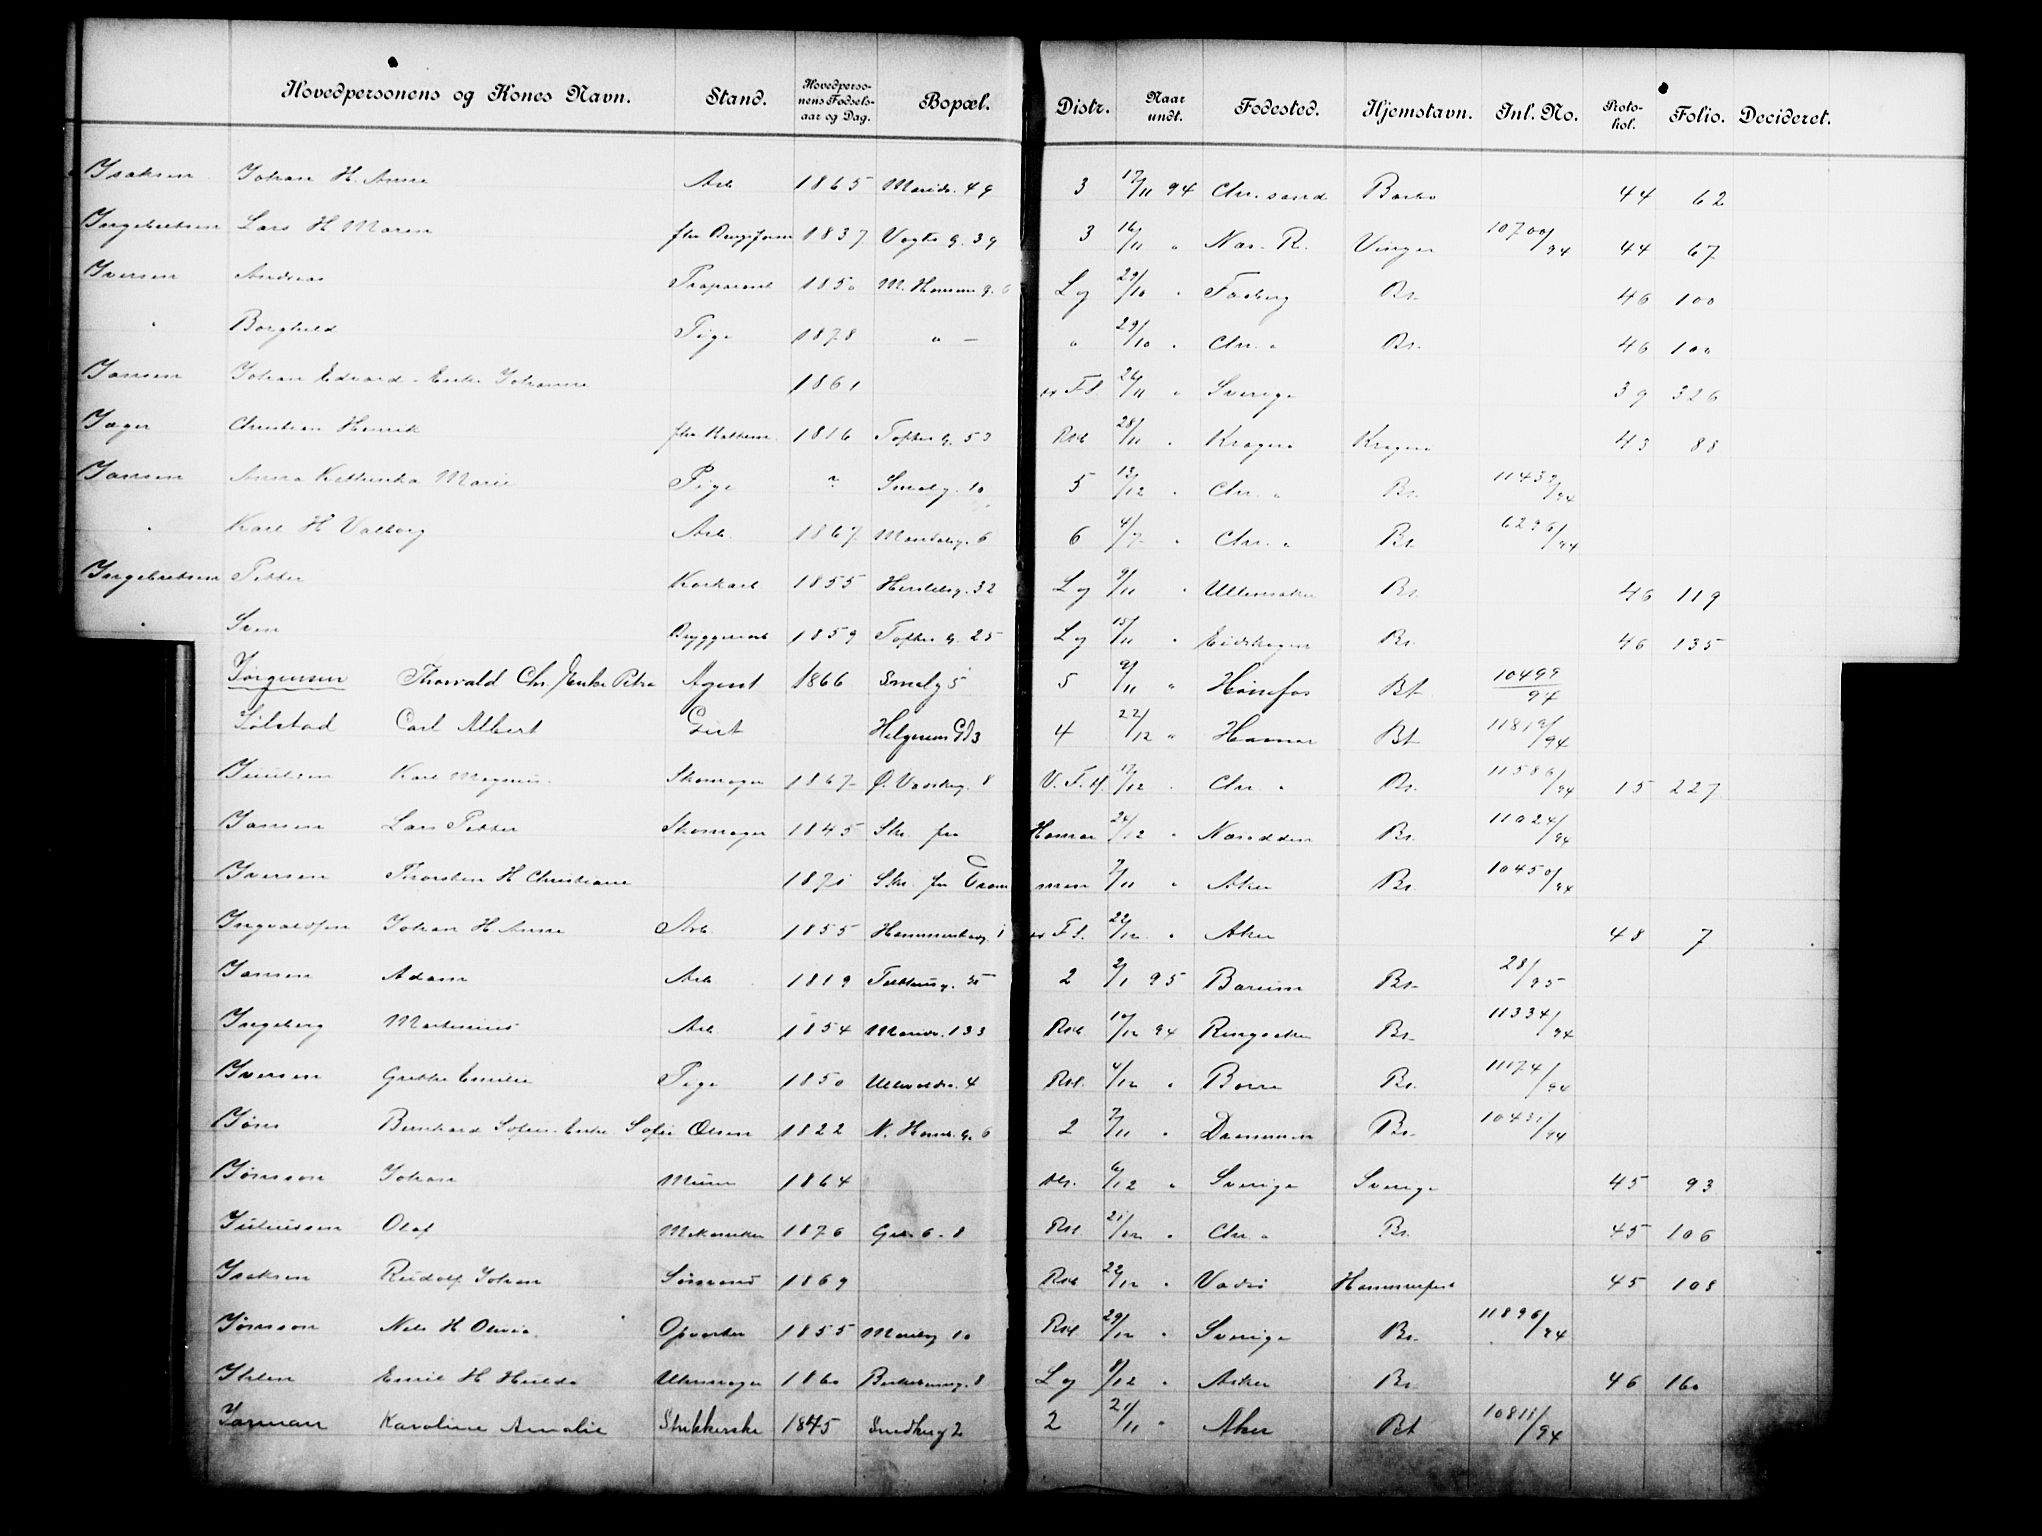 Hovedpersonens og Kones Navn. Stand. Hovedpersonens Fødselsaar og Dag. Bopæl. Distr. Naar undt. Fødested. Hjemstavn. Inl. No. Protokol. Folio. Decideret.
Isaksen Johan H. Anna Arb 1865 Maridv. 49 3 17/11 94 Chr.sand Barbo 44 62
Ingebretsen Lars H Maren 1837 Vogts g. 39 3 16/11 " Næs. R. Vinger 10700/94 44 67
Iversen Andreas 1850 M. Hansens g. 6 Lg 29/10 " Faaberg Bt. 46 100
" Borghild Pige 1878 " — " 29/10 " Chr. " Bt. 46 100
Jansen Johan Edvard. Enke Johanne 1861 26/11 " Sverige 39 326
Jæger Christian Henrik 1816 Toftes g. 53 Rst 28/11 " Kragerø Kragerø 43 88
Jansen Anna Kathinka Marie Pige ? Smalg. 10 5 13/12 " Chr. " Bt. 11432/94
" Karl H Valborg Arb. 1867 Mandalsg. 6 6 4/7 " Chr. " Bt. 6296/94
Ingebretsen Petter Korkarb 1855 Herslebsg. 32 Lg 9/11 " Ullensaker Bt. 46 119
" Sven Bryggeriarb 1859 Toftes g. 25 Lg 15/11 " Eidskogen Bt. 46 135
Jørgensen Thorvald Chr. Enke Petra Agent 1866 Smalg 5 5 9/11 " Hønefos Bt. 10499/94
Jølstad Carl Albert Helgesens Gd 3 4 22/12 " Hamar Bt 11819/94
Juulsen Karl Magnus. Skomager 1867 Ø. Vaskeg. 8 V. F. H. 17/12 " Chr. " Bt. 11586/94 15 227
Jansen Lars Petter Skomager 1845 Skr. fra Hamar 24/12 " Næsodden Bt. 11024/94
Iversen Thorsten H Christiane 1871 Skr. fra Drammen 7/11 " Aker Bt. 10450/94
Ingvaldsen Johan H. Anna Arb. 1855 Hammersborg. 1 22/12 " Aker 48 7
Jansen Adam Arb 1819 2 2/1 95 Bærum Bt. 28/95
Ingeberg Martinius Arb 1854 Maridv. 133 Rst. 10/12 94 Ringsaker Bt. 11334/94
Iversen Grethe Emilie Pige 1850 Ullevoldsv. 4 Rst. 4/12 " Borre Bt. 11174/94
Jøns Bernhard Sofus. Enke Sofie Olsen 1822 N. Hansens g. 6 2 7/11 " Drammen Bt. 10431/94
Jønsson Johan Murer 1864 6/12 " Sverige Sverige 45 93
Juliussen Olaf Mekaniker 1876 Gr. 6. 8 Rst. 21/12 " Chr. " Bt. 45 106
Isaksen Rudolf Johan Sømand 1869 Rst. 22/12 " Vadsø Hammerfest 45 108
Jønsson Nels H Olivia. Opvarter 1855 10 Rst 29/12 " Sverige Bt. 11896/94
Ihlen Emil H Hulda Uhrmager 1860 Birkebeinerg. 8 Lg 8/12 " Asker Bt. 46 160
Jarman Karoline Amalie Strikkerske 1845 Sundbyg 2 2 21/11 " Aker Bt 10811/94